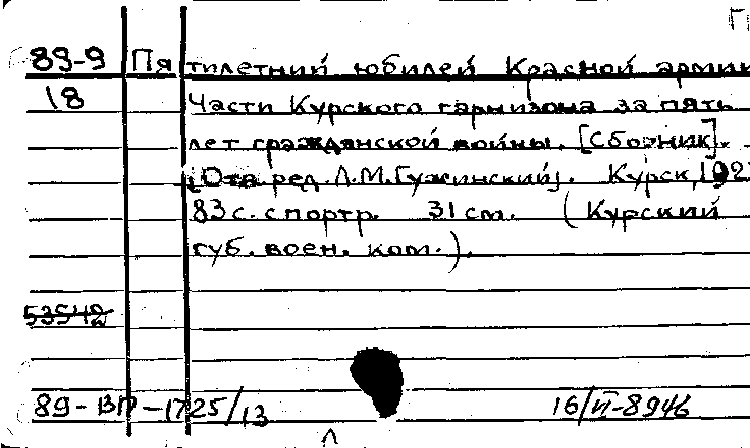 89-9 Пятилетний юбилей Красной армии
18 Части Курского гарнизона за пять
лет гражданской войны. [Сборник].
[Отв. ред. Л.М.Гужинский]. Курск, 192
83 с. с портр. 31 см. (Курский
губ. воен. ком.).
53540
89-ВП-1725/13 16/VI-8946